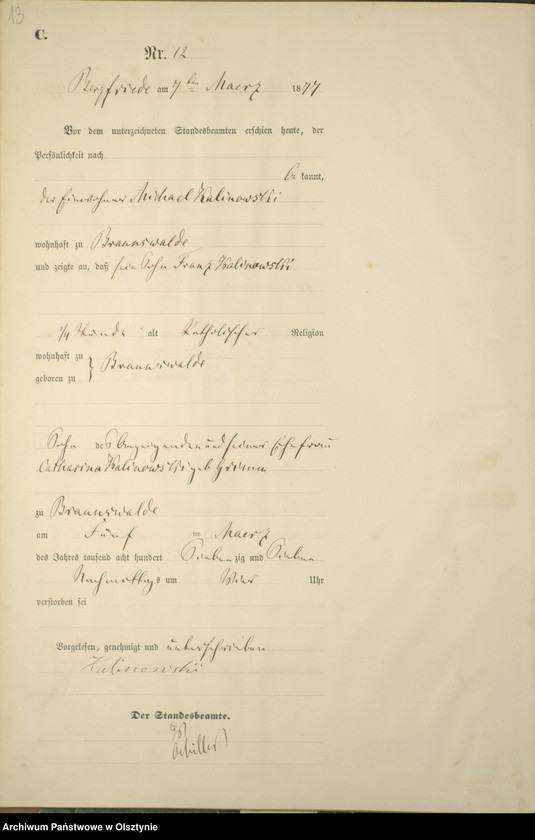 13
C.
Nr. 12
Bergfriede am 7ten Maerz 1877
Vor dem unterzeichneten Standesbeamten erschien heute, der
Persönlichkeit nach
be kannt,
der Einwohner Michael Kalinowski
wohnhaft zu Braunswalde
und zeigte an, daß sein Sohn Franz Kalinowski
1/4 Stunde alt Katholischer Religion
wohnhaft zu
geboren zu } Braunswalde
Sohn des Anzeigenden und seiner Ehefrau
Catharina Kalinowski geb Grimm
zu Braunswalde
am Fünf ten Maerz
des Jahres tausend acht hundert Sieben zig und Sieben
Nachmittags um Vier Uhr
verstorben sei
Vorgelesen, genehmigt und unterschrieben
Kalinowski
Der Standesbeamte.
Schiller
Archiwum Państwowe w Olsztynie